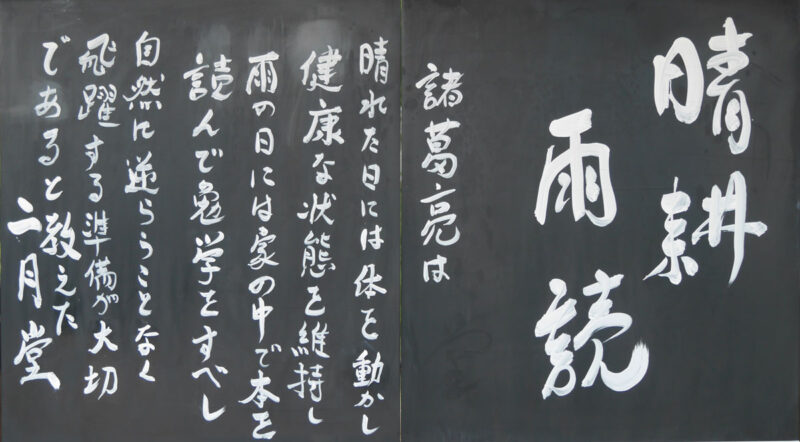 晴耕
雨読
諸葛亮は
晴れた日には体を動かし
健康な状態を維持し
雨の日には家の中で本を
読んで勉学をすべし
自然に逆らうことなく
飛躍する準備が大切
であると教えた
二月堂